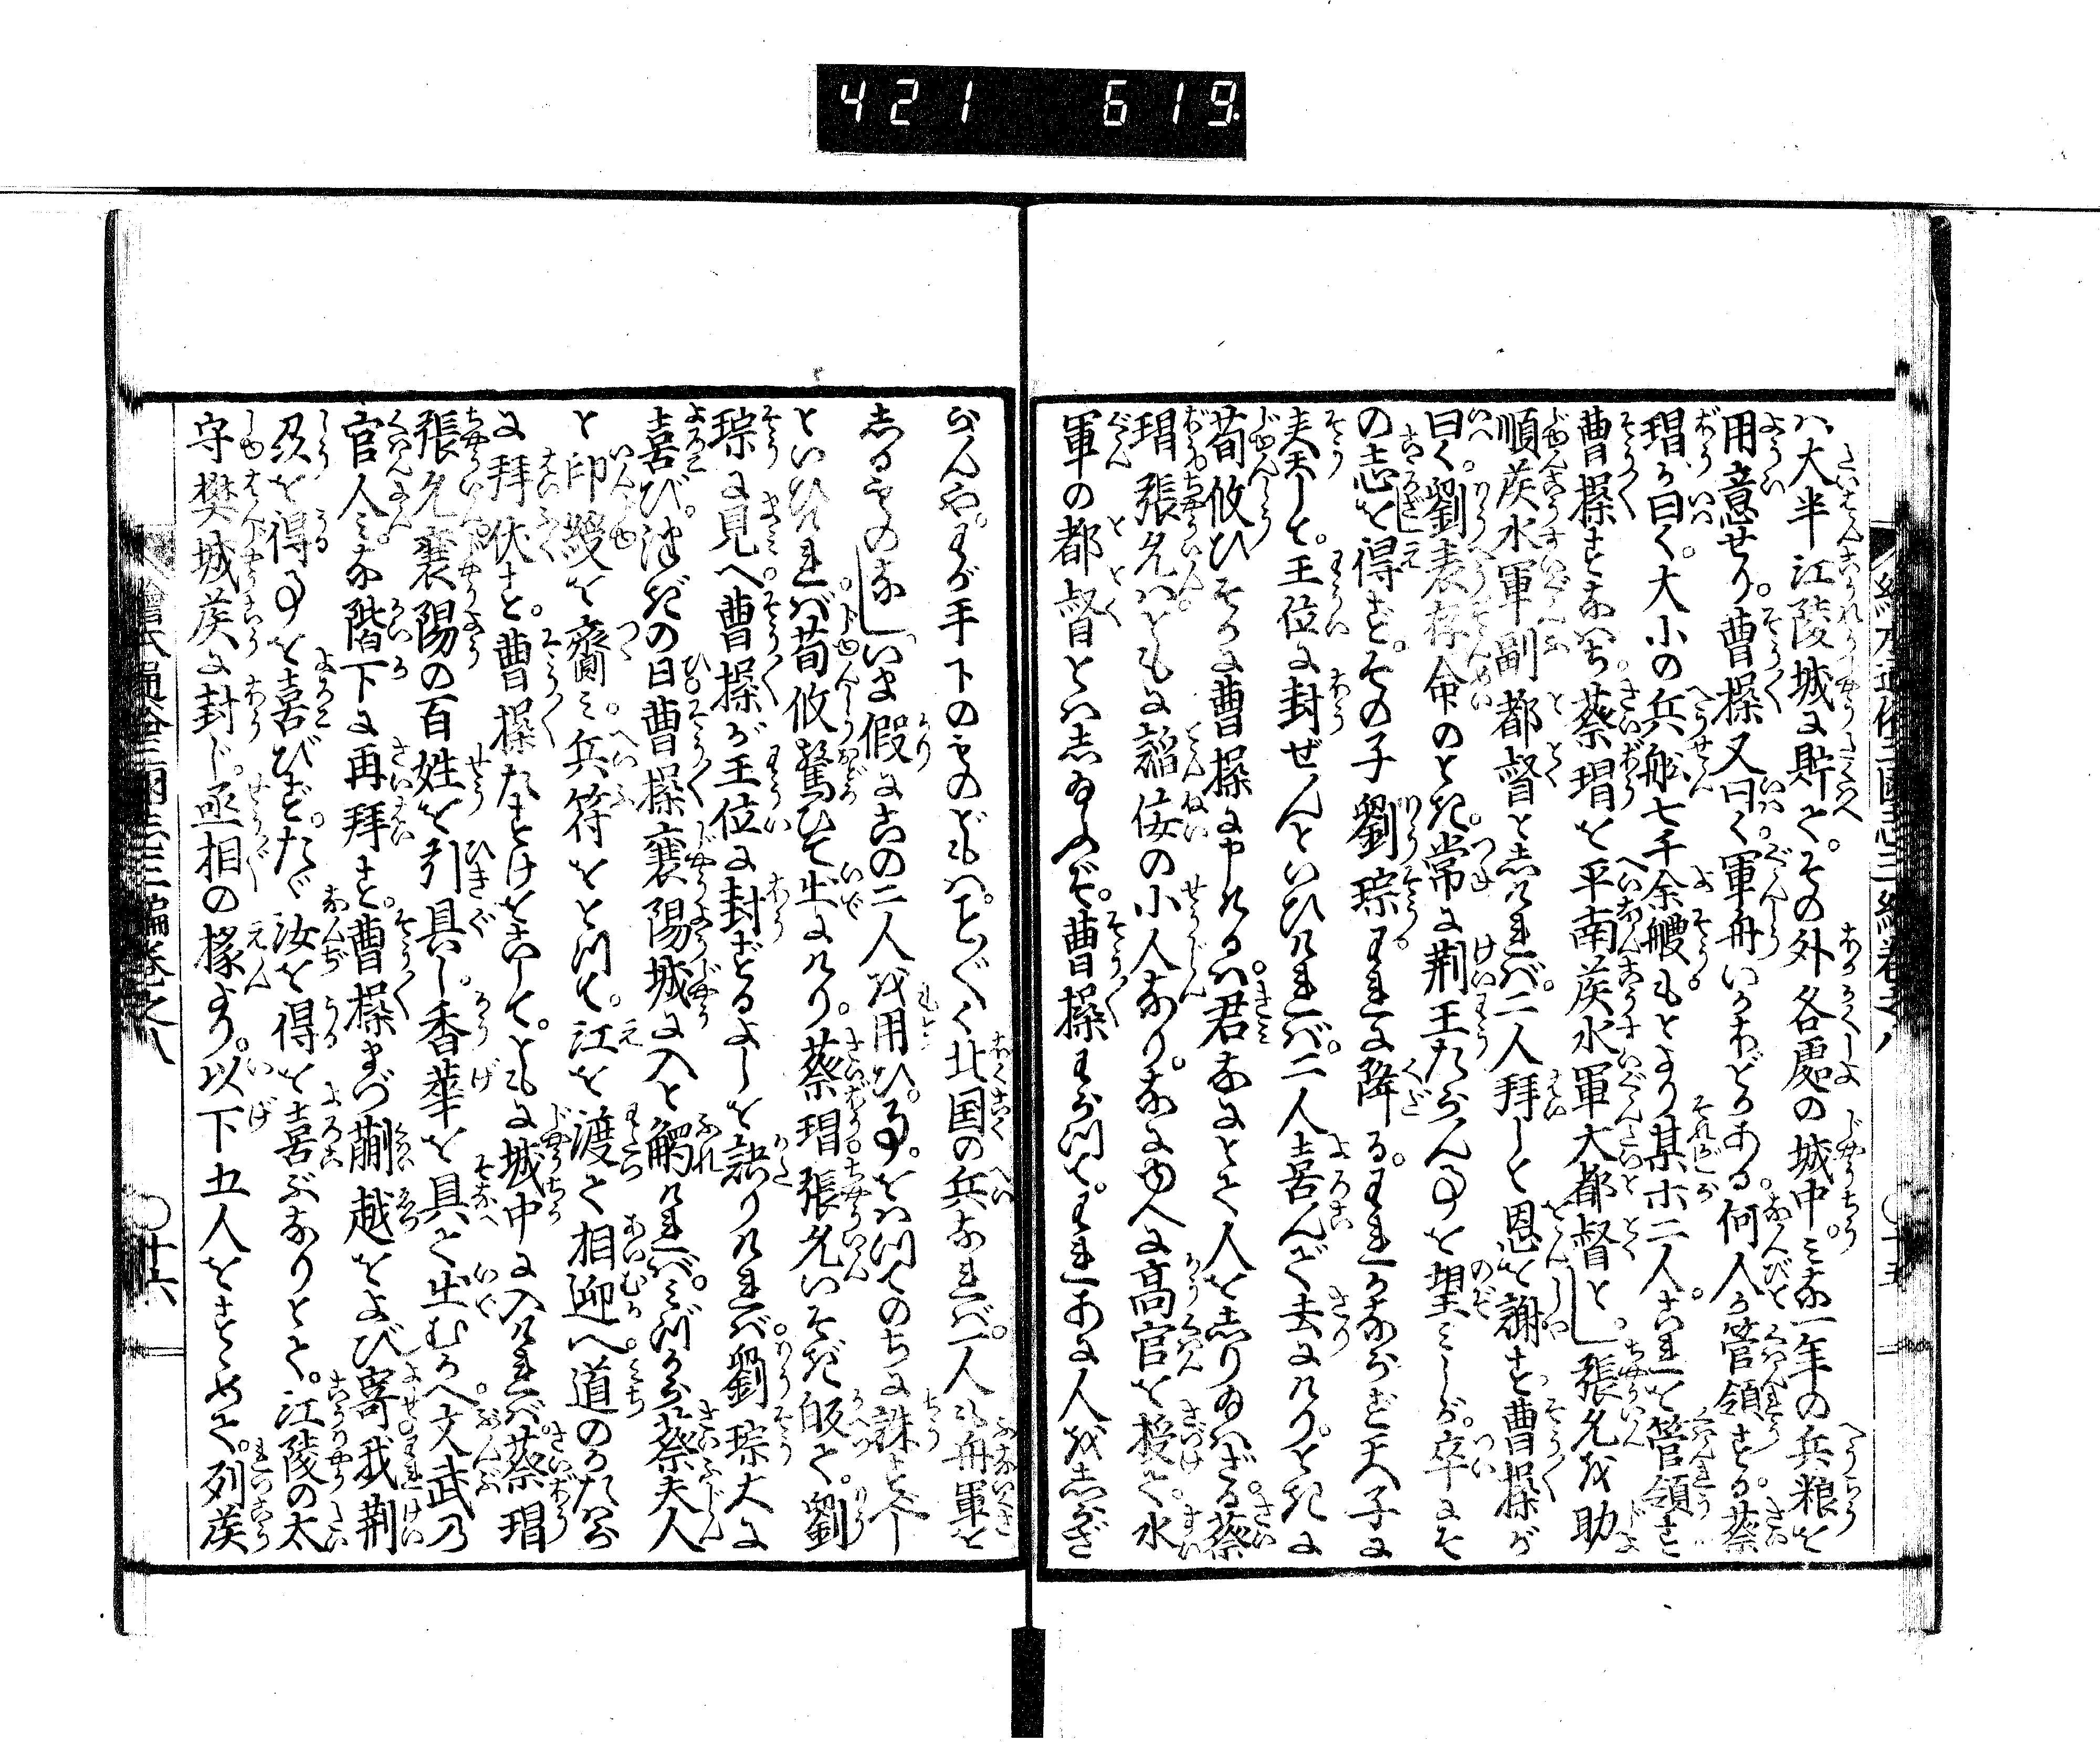 421 619
絵本通俗三國志三編巻之八 〇十五
ハ大半江陵城に貯へ。その外各處の城中。みな一年の兵粮を
用意せり。曹操又曰く軍舟いかほどある。何人か管領する。蔡
瑁が曰く。大小の兵船七千余艘もとより某ホ二人。これを管領す
曹操すなハち。蔡瑁を平南矦水軍大都督と。張允を助
順矦水軍副都督と志けれバ。二人拜して恩を謝す曹操が
曰く。劉表存命のとき。常に荆王たらん事を望ミしが。卒にそ
の志を得ず。その子劉琮。われに降る。われかならず天子に
奏して。王位に封ぜんといひけれバ。二人喜んで去にけり。ときに
荀攸ひそかに曹操に申けるハ。君なにとて人を志り給ハざる。蔡
瑁張允ハともに謟佞の小人なり。なにゆへに高官を授て。水
軍の都督とハ志給ふぞ。曹操わらつて。われあに人を志らざ
らんや。わが手下のものどもハ。ことごとく北国の兵なれバ。一人も舟軍を
志るものなし。いま假にこの二人を用ひ。事をハつてのちに誅すべし
といひけれバ荀攸驚ひて出にけり。蔡瑁張允いそぎ皈て。劉
琮に見へ曹操が王位に封ずるよしを語りけれバ。劉琮大に
喜び。次の日曹操襄陽城に入と觸けれバ。みづから蔡夫人
と印綬を齎ミ。兵符をとつて。江を渡て相迎へ。道のかたハら
に拜伏す。曹操たすけをこして。ともに城中に入けれバ。蔡瑁
張允襄陽の百姓を引具し。香華を具て出むかへ。文武の
官人みな階下に再拜す。曹操まづ蒯越をよび寄我荆
州を得る事を喜びず。たゞ汝を得を喜ぶなりとて。江陵の太
守樊城矦に封じ。丞相の掾より。以下五人をすゝめて。列矦
繪本通俗三國志三編巻之八 〇十六